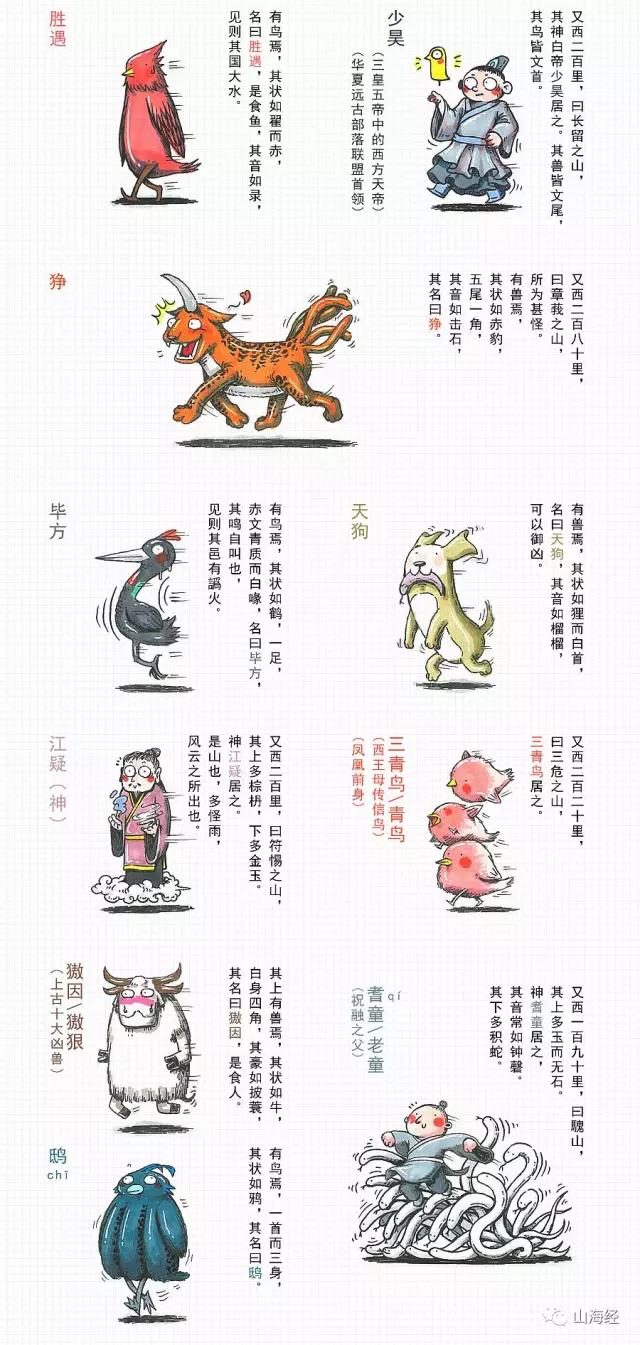 又西二百里，曰长留之山，
其神白帝少昊居之。其兽皆文尾，
其鸟皆文首。
少昊
（三皇五帝中的西方天帝）
（华夏远古部落联盟首领）
有鸟焉，其状如翟而赤，
名曰胜遇，是食鱼，其音如录，
见则其国大水。
胜遇
又西二百八十里，
曰章莪之山，
所为甚怪。
有兽焉，
其状如赤豹，
五尾一角，
其音如击石，
其名曰狰。
狰
有兽焉，其状如狸而白首，
名曰天狗，其音如榴榴，
可以御凶。
天狗
有鸟焉，其状如鹤，一足，
赤文青质而白喙，名曰毕方，
其鸣自叫也，
见则其邑有譌火。
毕方
又西二百二十里，
曰三危之山，
三青鸟居之。
三青鸟/青鸟
（西王母传信鸟）
（凤凰前身）
又西二百里，曰符惕之山，
其上多棕枬，下多金玉。
神江疑居之。
是山也，多怪雨，
风云之所出也。
江疑（神）
又西一百九十里，曰騩山，
其上多玉而无石。
神耆童居之，
其音常如钟磬。
其下多积蛇。
耆童/老童
qí
（祝融之父）
其上有兽焉，其状如牛，
白身四角，其豪如披蓑，
其名曰獓因，是食人。
獓因/獓狠
（上古十大凶兽）
有鸟焉，一首而三身，
其状如鸦，其名曰鸱。
鸱
chī
山海经